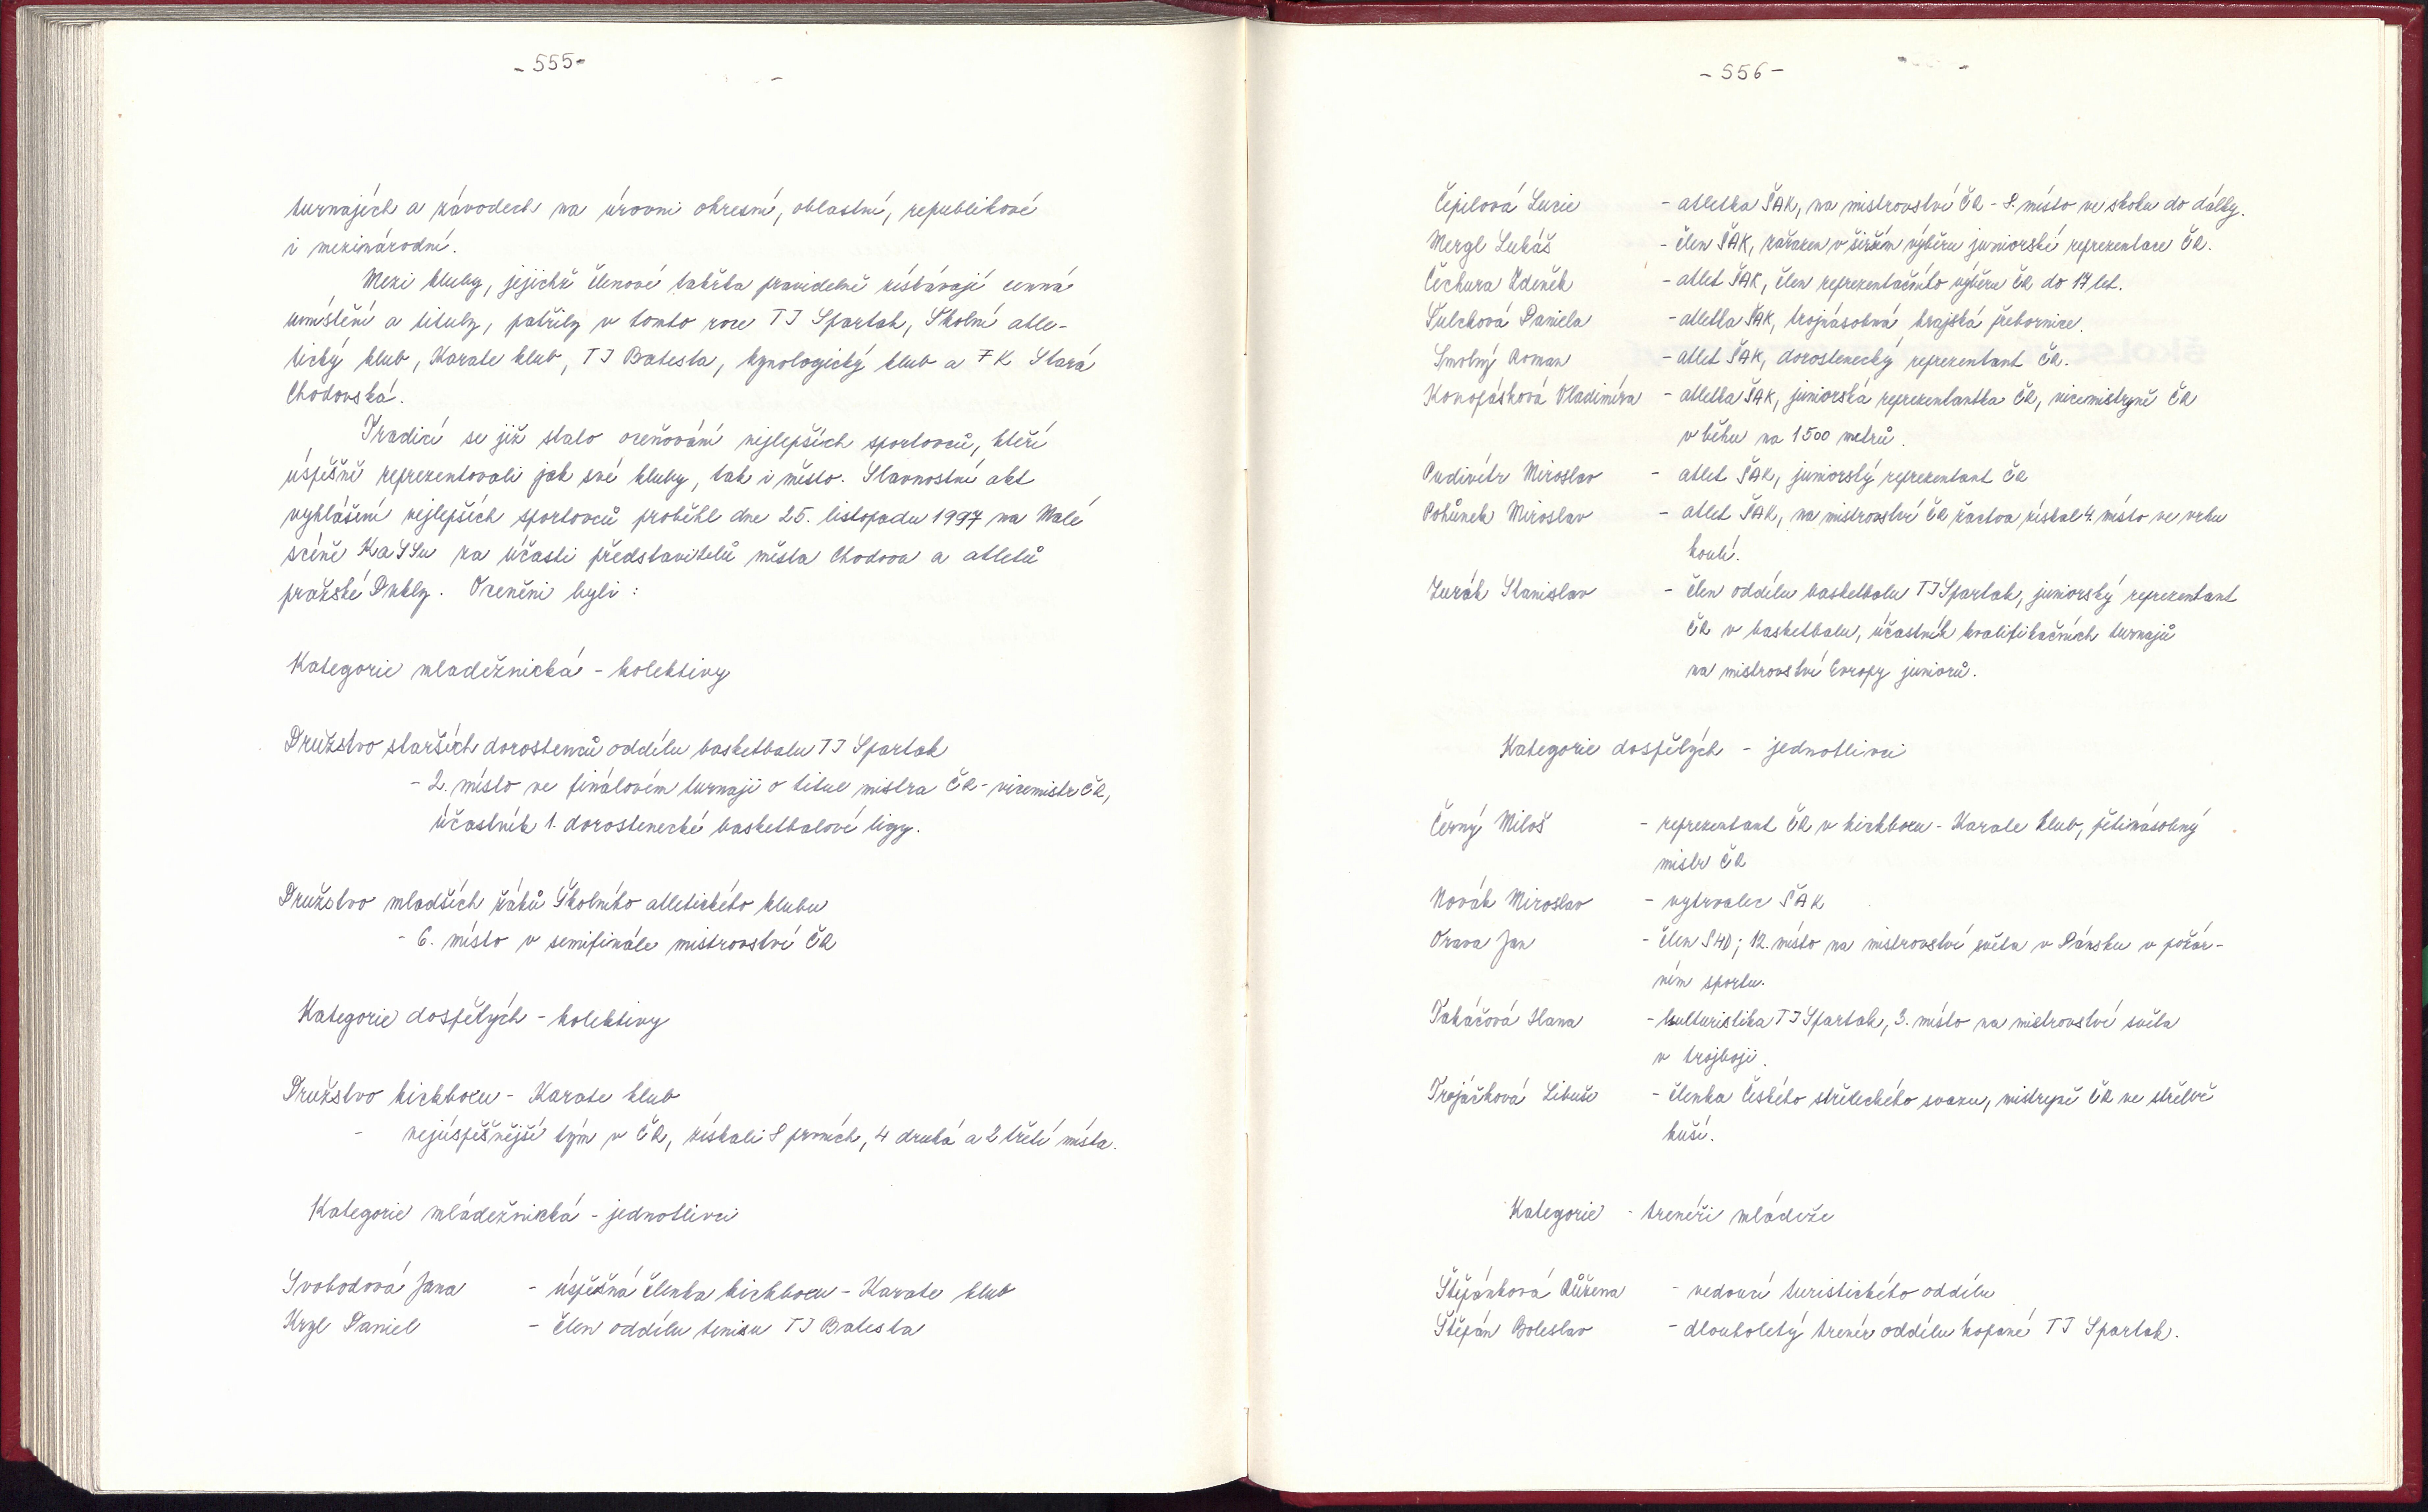 - 555 -
turnajích a závodech na úrovni okresní, oblastní, republikové
i mezinárodní.
Mezi kluby, jejichž členové takřka pravidelně získávají cenná
umístění a tituly, patřily v tomto roce TJ Spartak, Školní atle-
tický klub, Karate klub, TJ Batesta, kynologický klub a FK Stará
Chodovská.
Tradicí se již stalo oceňování nejlepších sportovců, kteří
úspěšně reprezentovali jak své kluby, tak i město. Slavnostní akt
vyhlášení nejlepších sportovců proběhl dne 25. listopadu 1997 na Malé
scéně KaSSu za účasti představitelů města Chodova a atletů
pražské Dukly. Oceněni byli :
Kategorie mladežnická - kolektivy
Družstvo starších dorostenců oddílu basketbalu TJ Spartak
- 2. místo ve finálovém turnaji o titul mistra ČR - vicemistr ČR,
účastník 1. dorostenecké basketbalové ligy.
Družstvo mladších žáků Školního atletického klubu
- 6. místo v semifinále mistrovství ČR
Kategorie dospělých - kolektivy
Družstvo kickboxu - Karate klub
- nejúspěšnější tým v ČR, získali 8 prvních, 4 druhá a 2 třetí místa.
Kategorie mládežnická - jednotlivci
Svobodová Jana - úspěšná členka kickboxu - Karate klub
Kryl Daniel - člen oddílu tenisu TJ Batesta
- 556 -
Čepilová Lucie - atletka ŠAK, na mistrovství ČR - 8. místo ve skoku do dálky.
Mergl Lukáš - člen ŠAK, zařazen v širším výběru juniorské reprezentace ČR.
Čechura Zdeněk - atlet ŠAK, člen reprezentačního výběru ČR do 17 let.
Šulcková Daniela - atletka ŠAK, trojnásobná krajská přebornice.
Smolný Roman - atlet ŠAK, dorostenecký reprezentant ČR.
Konopásková Vladimíra - atletka ŠAK, juniorská reprezentantka ČR, vicemistryně ČR
v běhu na 1500 metrů.
Pudivítr Miroslav - atlet ŠAK, juniorský reprezentant ČR
Pohůnek Miroslav - atlet ŠAK, na mistrovství ČR žactva získal 4. místo ve vrhu
koulí.
Žurák Stanislav - člen oddílu basketbalu TJ Spartak, juniorský reprezentant
ČR v basketbalu, účastník kvalifikačních turnajů
na mistrovství Evropy juniorů.
Kategorie dospělých - jednotlivci
Černý Miloš - reprezentant ČR v kickboxu - Karate klub, pětinásobný
mistr ČR
Novák Miroslav - vytrvalec ŠAK
Orava Jan - člen SHD; 12. místo na mistrovství světa v Dánsku v požár-
ním sportu.
Takáčová Hana - kulturistika TJ Spartak, 3. místo na mistrovství světa
v trojboji.
Trojáčková Libuše - členka Českého střeleckého svazu, mistryně ČR ve střelbě
kuší.
Kategorie - trenéři mládeže
Štěpánková Růžena - vedoucí turistického oddílu
Štěpán Boleslav - dlouholetý trenér oddílu kopané TJ Spartak.